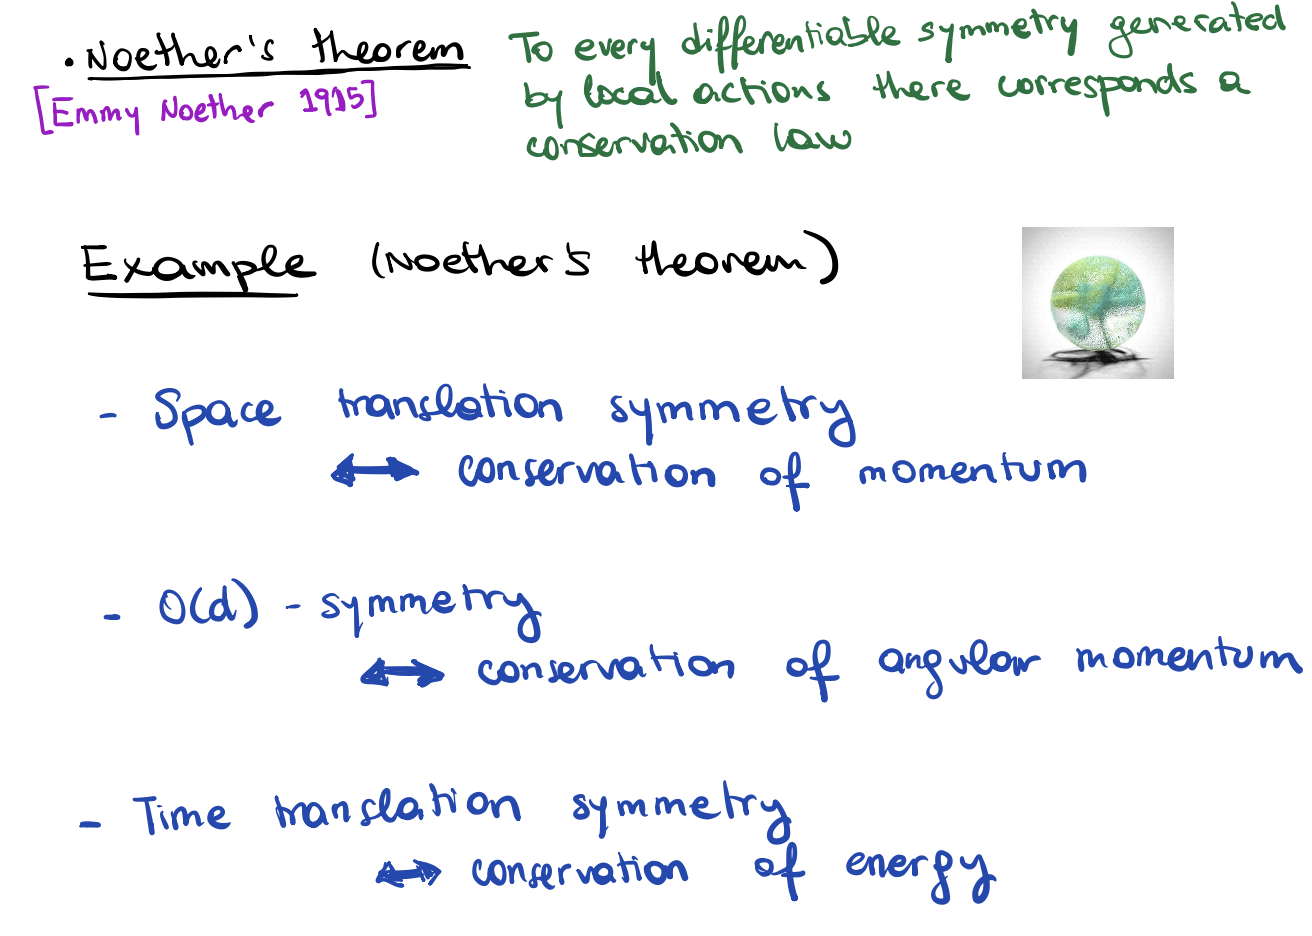 · Noether's theorem
[Emmy Noether 1915]
To every differentiable symmetry generated
by local actions there corresponds a
conservation law
Example (Noether's theorem)
- Space translation symmetry
↔ conservation of momentum
- O(d) - symmetry
↔ conservation of angular momentum
- Time translation symmetry
↔ conservation of energy